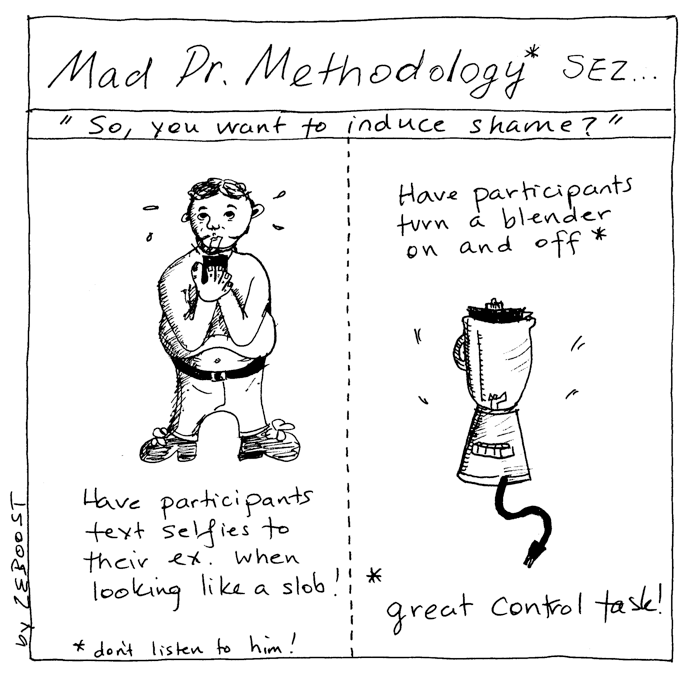 Mad Dr. Methodology* SEZ...
"So, you want to induce shame?"
Have participants
text selfies to
their ex. when
looking like a slob!
* don't listen to him!
Have participants
turn a blender
on and off *
*
great control task!
by ZEBOOST